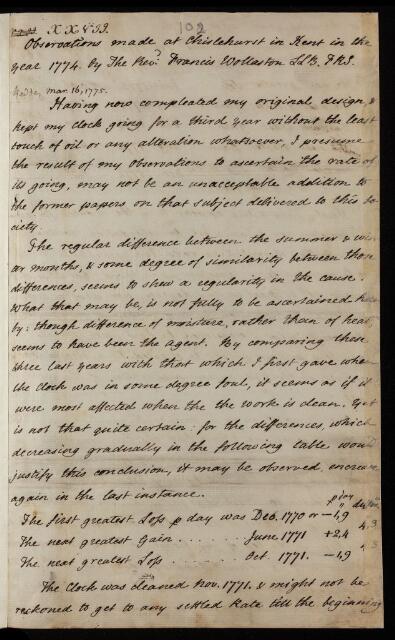 XXVII.
102
Observations made at Chislehurst in Kent in the
year 1774. by The Revd. Francis Wollaston LLB. FRS.
Redde, mar. 16, 1775.
Having now compleated my original design, &
kept my clock going for a third year without the least
touch of oil or any alteration whatsoever, I presume
the result of my Observations to ascertain the rate of
its going, may not be an unacceptable addition to
the former papers on that subject delivered to this So
ciety.
The regular difference between the summer & win
ter months, & some degree of similarity between those
differences, seems to shew a regularity in the cause.
What that may be, is not fully to be ascertained here
by: though difference of moisture, rather than of heat,
seems to have been the agent. By comparing these
three last years with that which I first gave when
the clock was in some degree foul, it seems as if it
were most affected when the the work is clean. Yet
is not that quite certain: for the differences, which
decreasing gradually in the following table would
justify this conclusion, it may be observed encrease
again in the last instance.
p day
The first greatest Loss p day was Dec. 1770 or -1,9
4,3
The next greatest Gain . . . . . . June 1771 +2,4
4,3
The next greatest Loss . . . . . . Oct. 1771. -1,9
The Clock was cleaned Nov. 1771. & might not be
reckoned to get to any settled Rate till the beginning